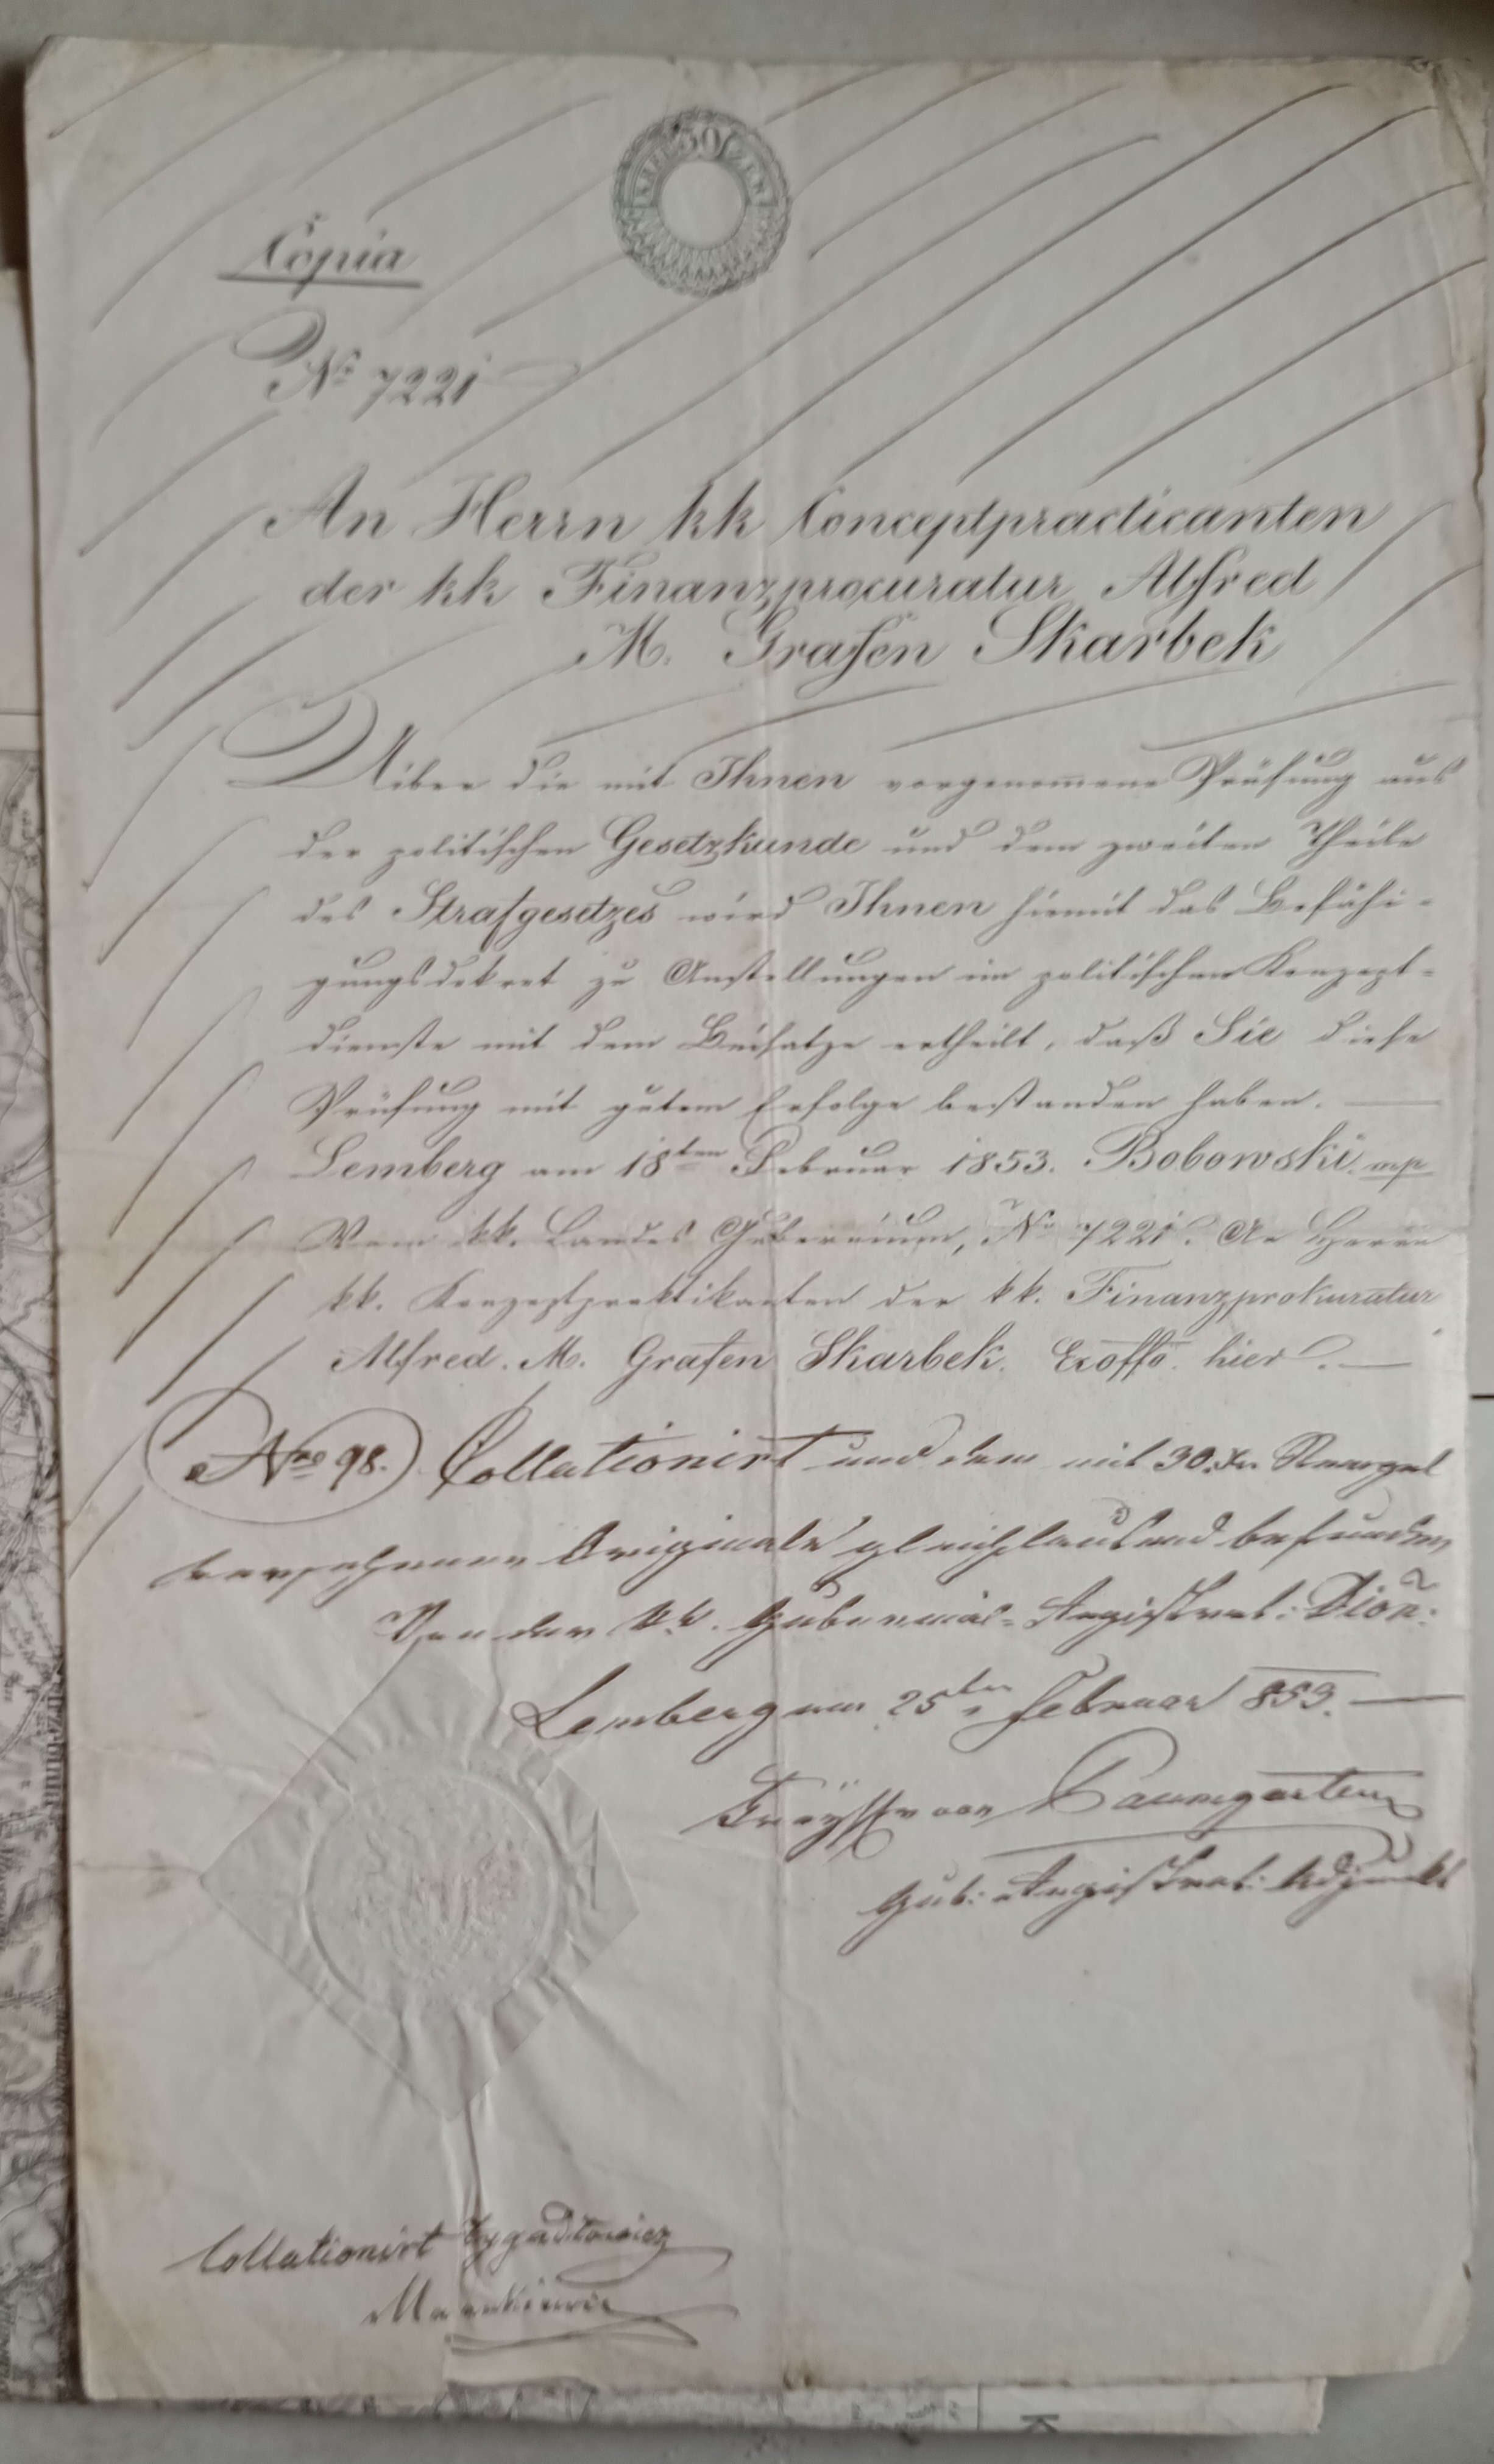 30
KREUZER
Copia
No 7221
An Herrn kk Conceptpracticanten
der kk Finanzprocuratur Alfred
M. Grafen Skarbek
Uiber die mit Ihnen vorgenommene Prüfung aus
der politischen Gesetzkunde und dem zweiten Theile
des Strafgesetzes wird Ihnen hiemit das Befähi-
gungsdekret zu Anstellungen im politischen Konzept-
dienste mit dem Beisatze ertheilt, daß Sie diese
Prüfung mit gutem Erfolge bestanden haben.
Lemberg am 18ten Februar 1853. Bobowski mp
Vom kk. Landes Gubernium, No 7221. An Herrn
kk. Konzeptpraktikanten der kk. Finanzprokuratur
Alfred. M. Grafen Skarbek. Exoffo. hier.
Nro 98. Collationirt und dem mit 30. Xr Stempel
versehenen Originale gleichlautend befunden
Von der k.k. Gubernial-Registrat: Dion:
Lemberg am 25ten Februar 853.
von Baumgarten
Gub: Registrat: Adjunkt
Collationirt